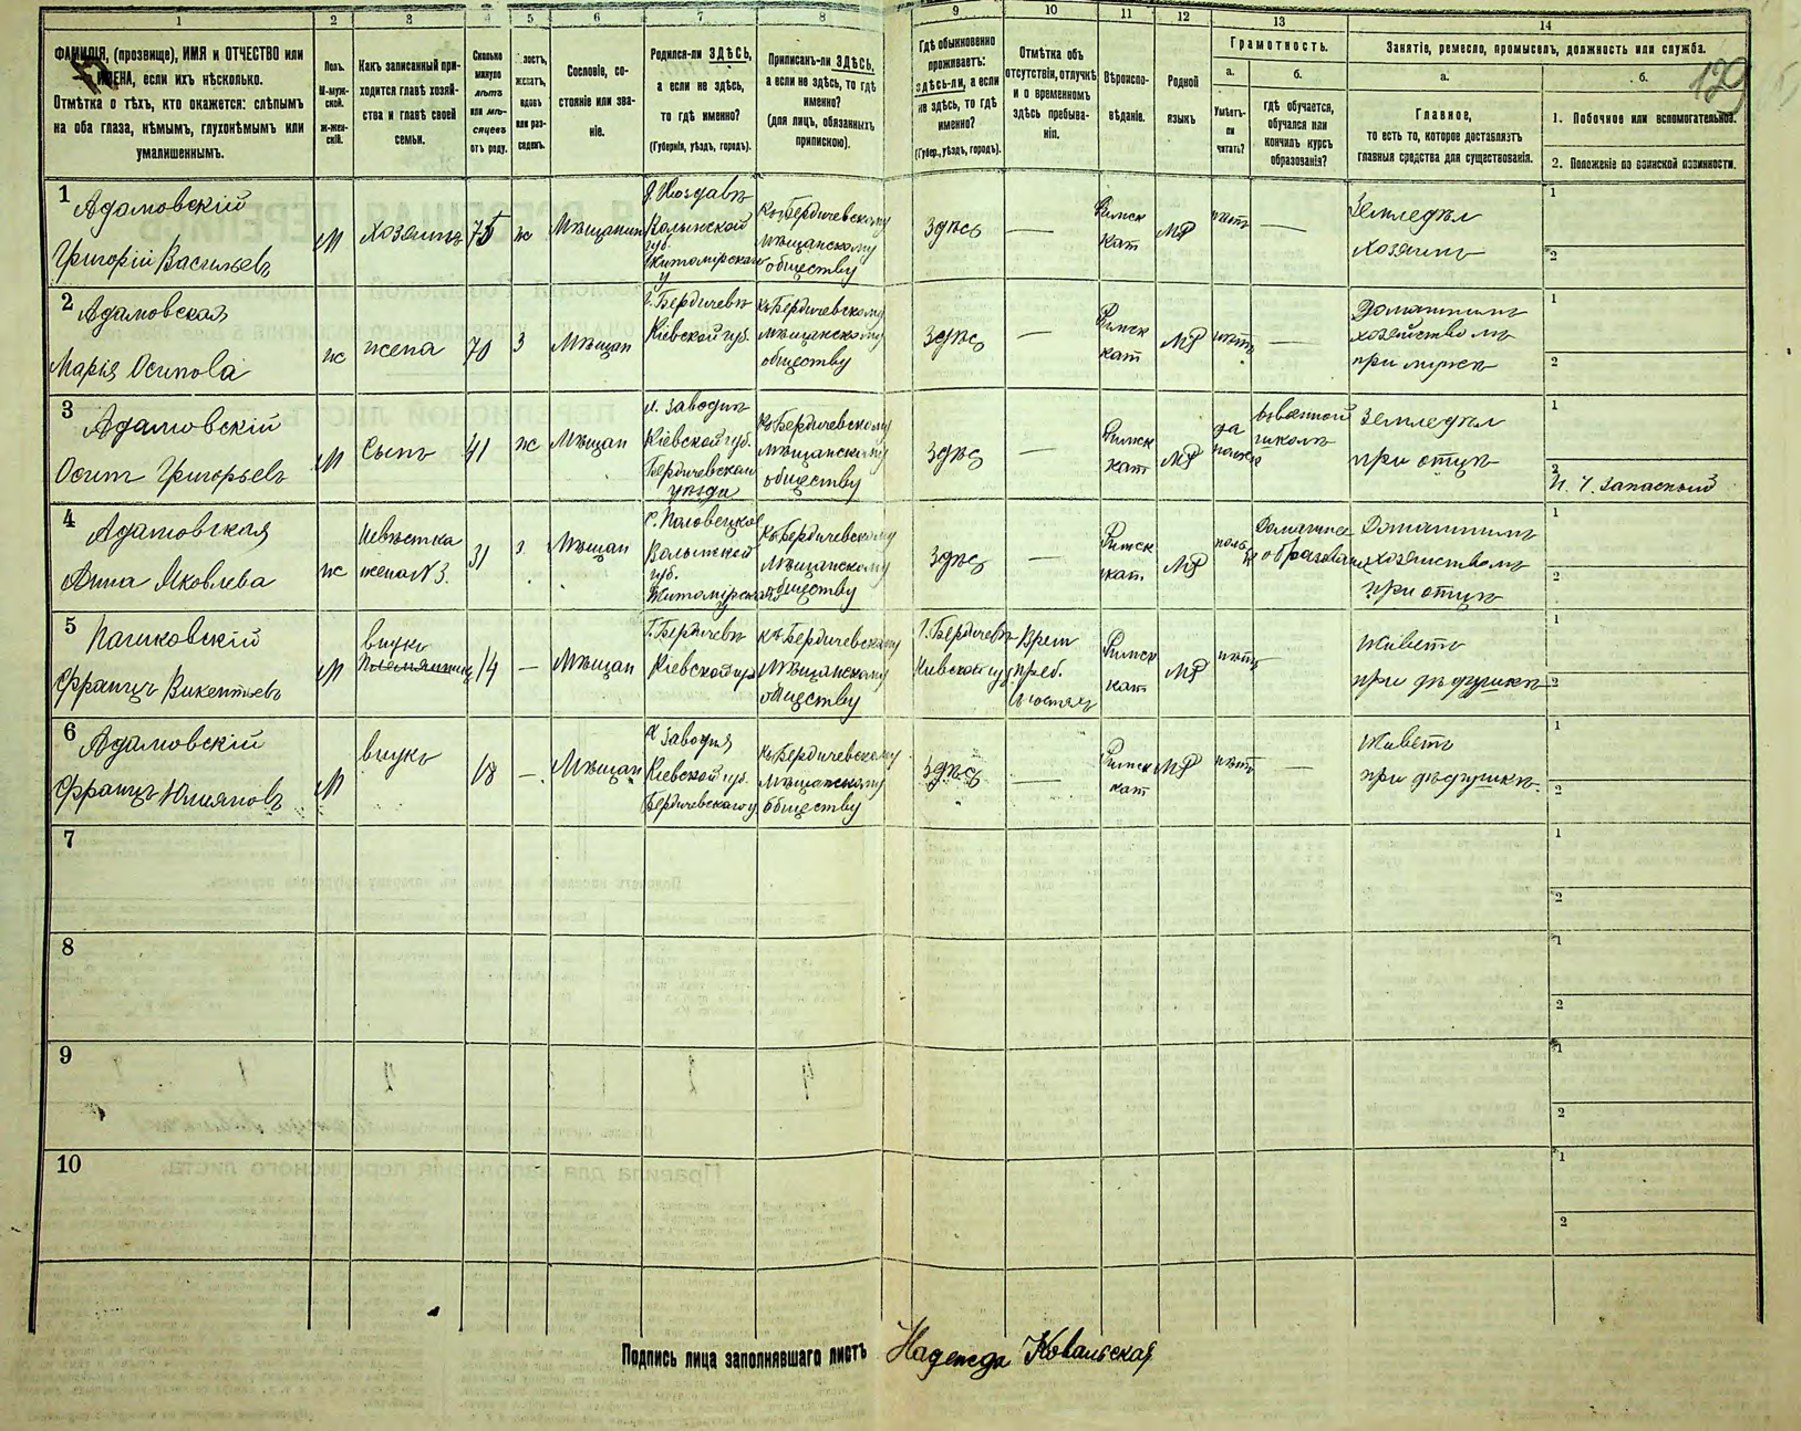 1 2 3 4 5 6 7 8 9 10 11 12 13 14
ФАМИЛІЯ, (прозвище), ИМЯ и ОТЧЕСТВО или
ИМЕНА, если ихъ нѣсколько.
Отмѣтка о тѣхъ, кто окажется: слѣпымъ
на оба глаза, нѣмымъ, глухонѣмымъ или
умалишеннымъ.
Полъ.
М-муж-
ской.
Ж-жен-
скій.
Какъ записанный при-
ходится главѣ хозяй-
ства и главѣ своей
семьи.
Сколько
минуло
лѣтъ
или мѣ-
сяцевъ
отъ роду.
лостъ,
женатъ,
вдовъ
или раз-
веденъ.
Сословіе, со-
стояніе или зва-
ніе.
Родился-ли ЗДѢСЬ,
а если не здѣсь,
то гдѣ именно?
(Губернія, уѣздъ, городъ).
Приписанъ-ли ЗДѢСЬ,
а если не здѣсь, то гдѣ
именно?
(для лицъ, обязанныхъ
припискою).
Гдѣ обыкновенно
проживаетъ:
здѣсь-ли, а если
не здѣсь, то гдѣ
именно?
(Губер., уѣздъ, городъ).
Отмѣтка объ
отсутствіи, отлучкѣ
и о временномъ
здѣсь пребыва-
ніи.
Вѣроиспо-
вѣданіе.
Родной
языкъ
Грамотность.
а.
Умѣетъ-
ли
читать?
б.
гдѣ обучается,
обучался или
кончилъ курсъ
образованія?
Занятіе, ремесло, промыселъ, должность или служба.
а.
Главное,
то есть то, которое доставляетъ
главныя средства для существованія.
б.
1. Побочное или вспомогательное.
2. Положеніе по воинской повинности.
129
1 Адамовскій
Григорій Васильевъ
М
Хозяинъ
75
ж
Мѣщанин
Волынской
губ.
Житомирскаго
у
Къ Бердичевскому
Мѣщанскому
обществу
Здѣсь
—
Римск
Кат
МР
нѣтъ
—
Земледѣл
Хозяинъ
1
2
2 Адамовская
Марія Осипова
ж
жена
70
З
Мѣщан
г. Бердичевъ
Кіевской губ.
къ Бердичевскому
мѣщанскому
обществу
Здѣсь
—
Римск
кат
МР
нѣтъ
—
Домашнимъ
хозяйствомъ
при мужѣ
1
2
3 Адамовскій
Осипъ Григорьевъ
М
Сынъ
41
ж
Мѣщан
Кіевской губ.
Бердичевскаго
уѣзда
Къ Бердичевскому
мѣщанскому
обществу
Здѣсь
—
Римск
кат
МР
да
въ военной
школѣ
Земледѣл
при отцѣ
1
2
Н. Ч. Запасный
4 Адамовская
Анна Яковлева
ж
Невѣстка
жена N 3.
31
З
Мѣщан
Волынской
губ.
Житомирскаго
у
Къ Бердичевскому
Мѣщанскому
обществу
Здѣсь
—
Римск
кат.
МР
Домашнее
образован
Домашнимъ
хозяйствомъ
при отцѣ
1
2
5
Францъ Викентьевъ
М
внукъ
племянникъ
14
—
Мѣщан
Г. Бердичевъ
Кіевской губ
къ Бердичевскому
Мѣщанскому
обществу
Г. Бердичевъ
Киевской губ
Врем
преб.
въ гостяхъ
Римск
кат
МР
нѣтъ
Живетъ
при дѣдушкѣ
1
2
6 Адамовскій
Францъ Юліяновъ
М
внукъ
18
—
Мѣщан
Кіевской губ.
Бердичевскаго у
Къ Бердичевскому
Мѣщанскому
обществу
Здѣсь
—
Римск
кат
МР
нѣтъ
—
Живетъ
при дѣдушкѣ.
1
2
7
1
2
8
1
2
9
1
2
10
1
2
Подпись лица заполнявшаго листъ Надежда Ковальская